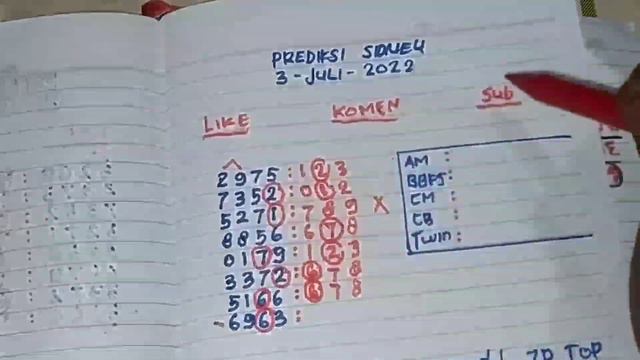 PREDIKSI SIDNEY
3-JULI-2022
LIKE KOMEN SUB
2975:123
7352:012
5271:789
8856:678
0179:123
3372:678
5166:678
-6963:
X
AM :
BBFS:
CM :
CB :
TWIN: